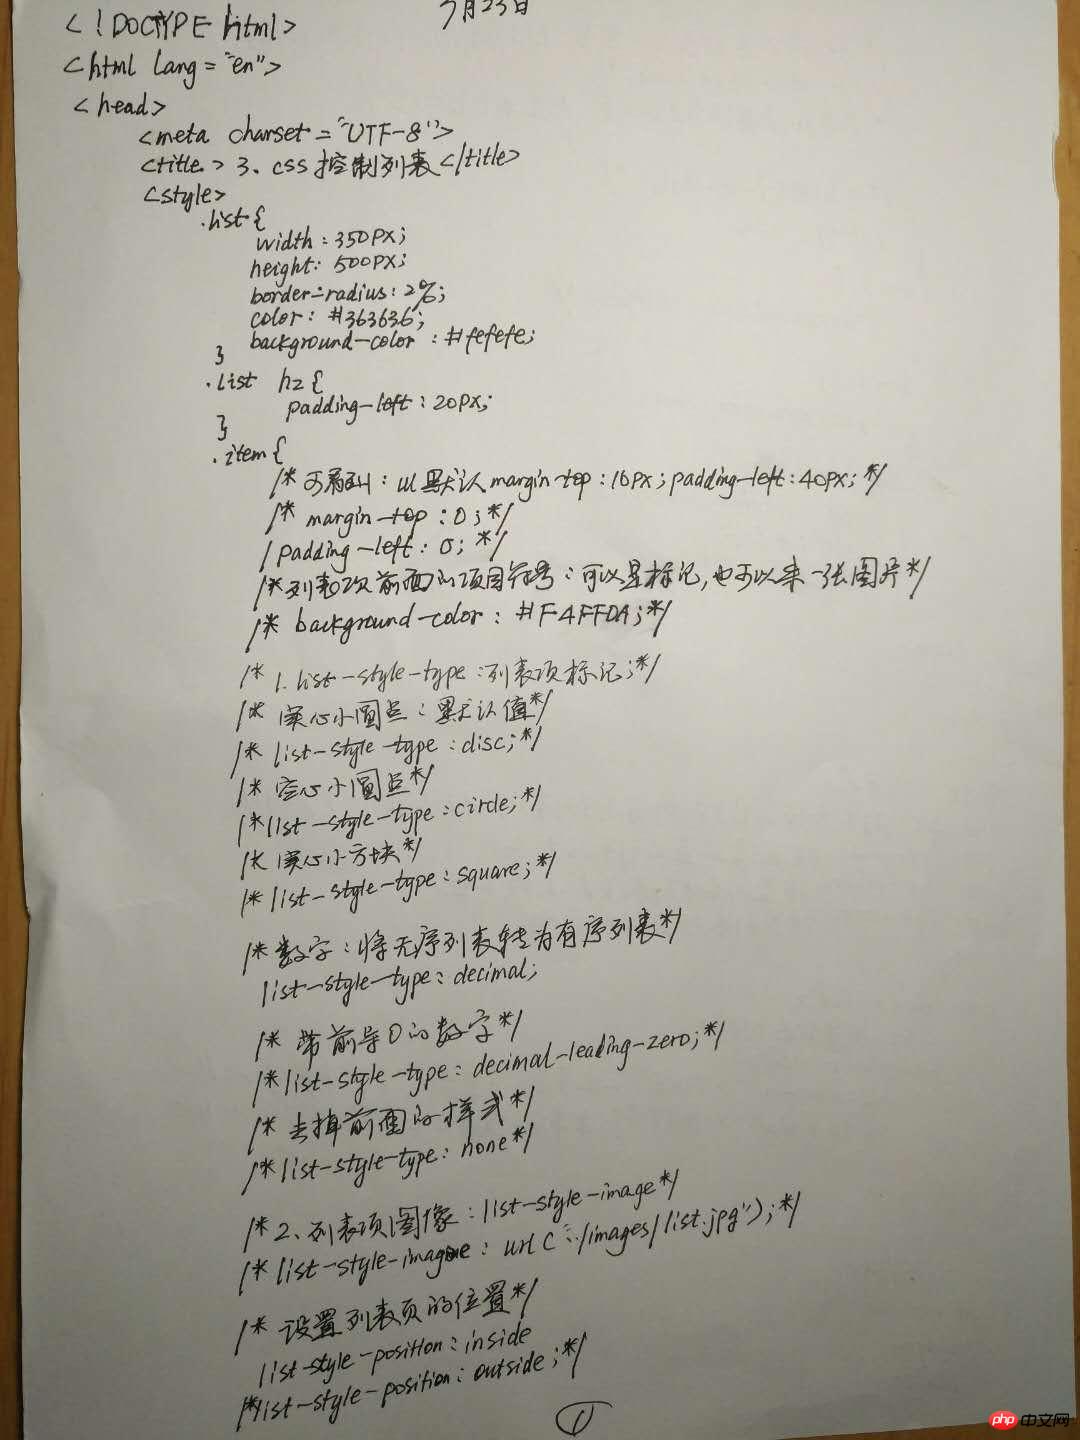 7月23日
<!DOCTYPE html>
<html lang="en">
<head>
<meta charset="UTF-8">
<title>3、css控制列表</title>
<style>
.list{
width:350px;
height:500px;
border-radius:2%;
color:#363636;
background-color:#fefefe;
}
.list h2{
padding-left:20px;
}
.item{
/* 可看到:ul默认margin-top:16px;padding-left:40px;*/
/* margin-top:0;*/
/padding-left:0;*/
/*列表项前面的项目符号:可以是标记,也可以来一张图片*/
/* background-color:#F4FFDA;*/
/* 1.list-style-type:列表项标记;*/
/* 实心小圆点:默认值*/
/* list-style-type:disc;*/
/* 空心小圆点*/
/*list-style-type:circle;*/
/* 实心小方块*/
/* list-style-type:square;*/
/*数字:将无序列表转为有序列表*/
list-style-type:decimal;
/* 带前导0的数字*/
/*list-style-type:decimal-leading-zero;*/
/* 去掉前面的样式*/
/*list-style-type:none*/
/*2、列表项图像:list-style-image*/
/* list-style-image:url("./images/list.jpg");*/
/* 设置列表页的位置*/
list-style-position:inside
/*list-style-position:outside;*/
1
php中文网